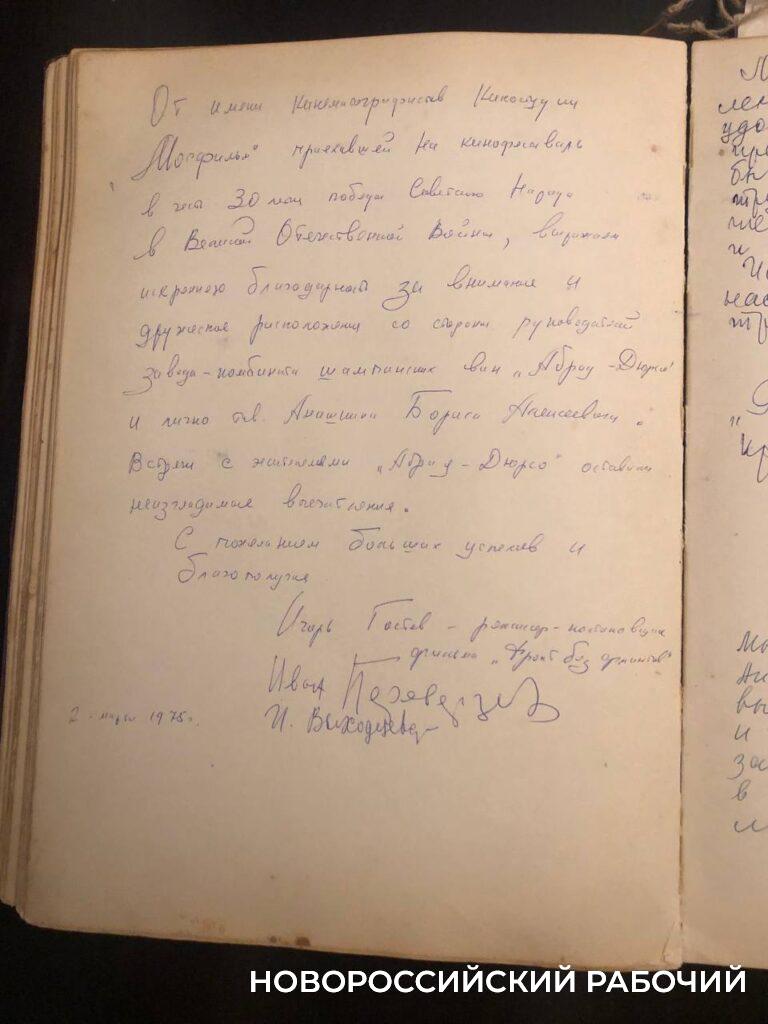 От имени кинематографистов Киностудии
„Мосфильм" приехавшей на кинофестиваль
в честь 30 летия победы Советского Народа
в Великой Отечественной Войне, выражаем
искреннюю благодарность за внимание и
дружеское расположение со стороны руководителей
завода-комбината шампанских вин „Абрау-Дюрсо"
и лично тов. Анашкина Бориса Алексеевича.
Встречи с жителями „Абрау-Дюрсо" оставили
неизгладимое впечатление.
С пожеланием больших успехов и
благополучия
Игорь Гостев - режиссер-постановщик
фильма „Фронт без флангов"
Иван Переверзев
И. Выходцева
2 - марта 1975 г.
НОВОРОССИЙСКИЙ РАБОЧИЙ